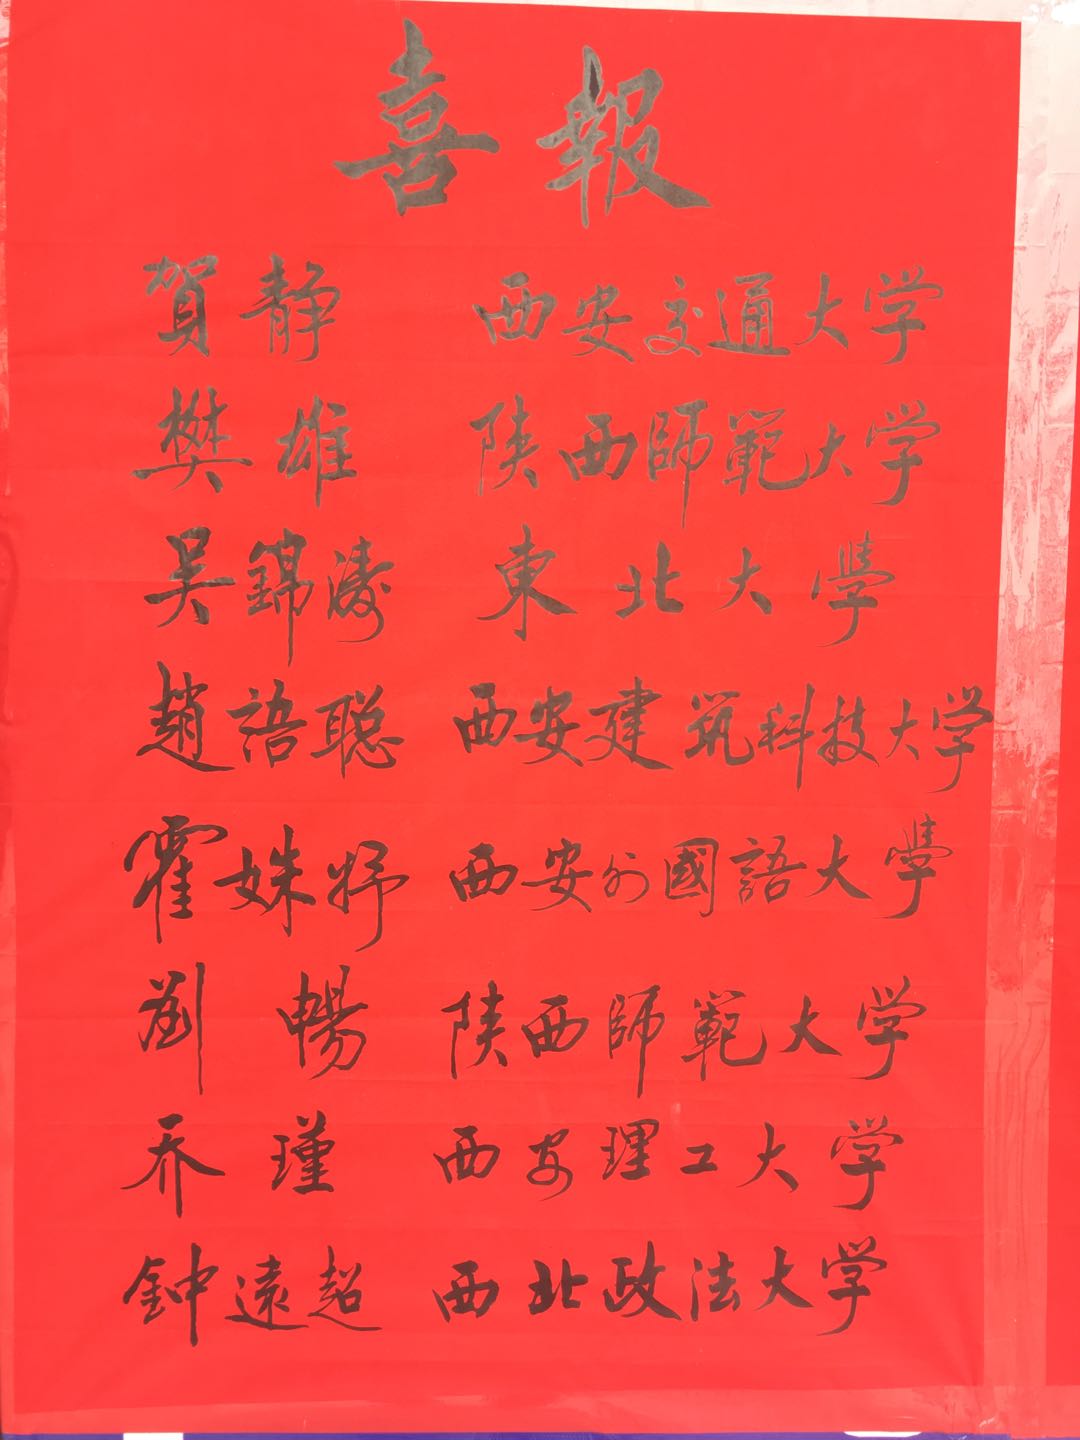 喜報
賀静 西安交通大学
樊雄 陕西師範大学
吴錦涛 東北大學
趙語聪 西安建筑科技大学
霍姝妤 西安外國語大學
劉暢 陕西師範大学
乔瑾 西安理工大学
鈡遠超 西北政法大学